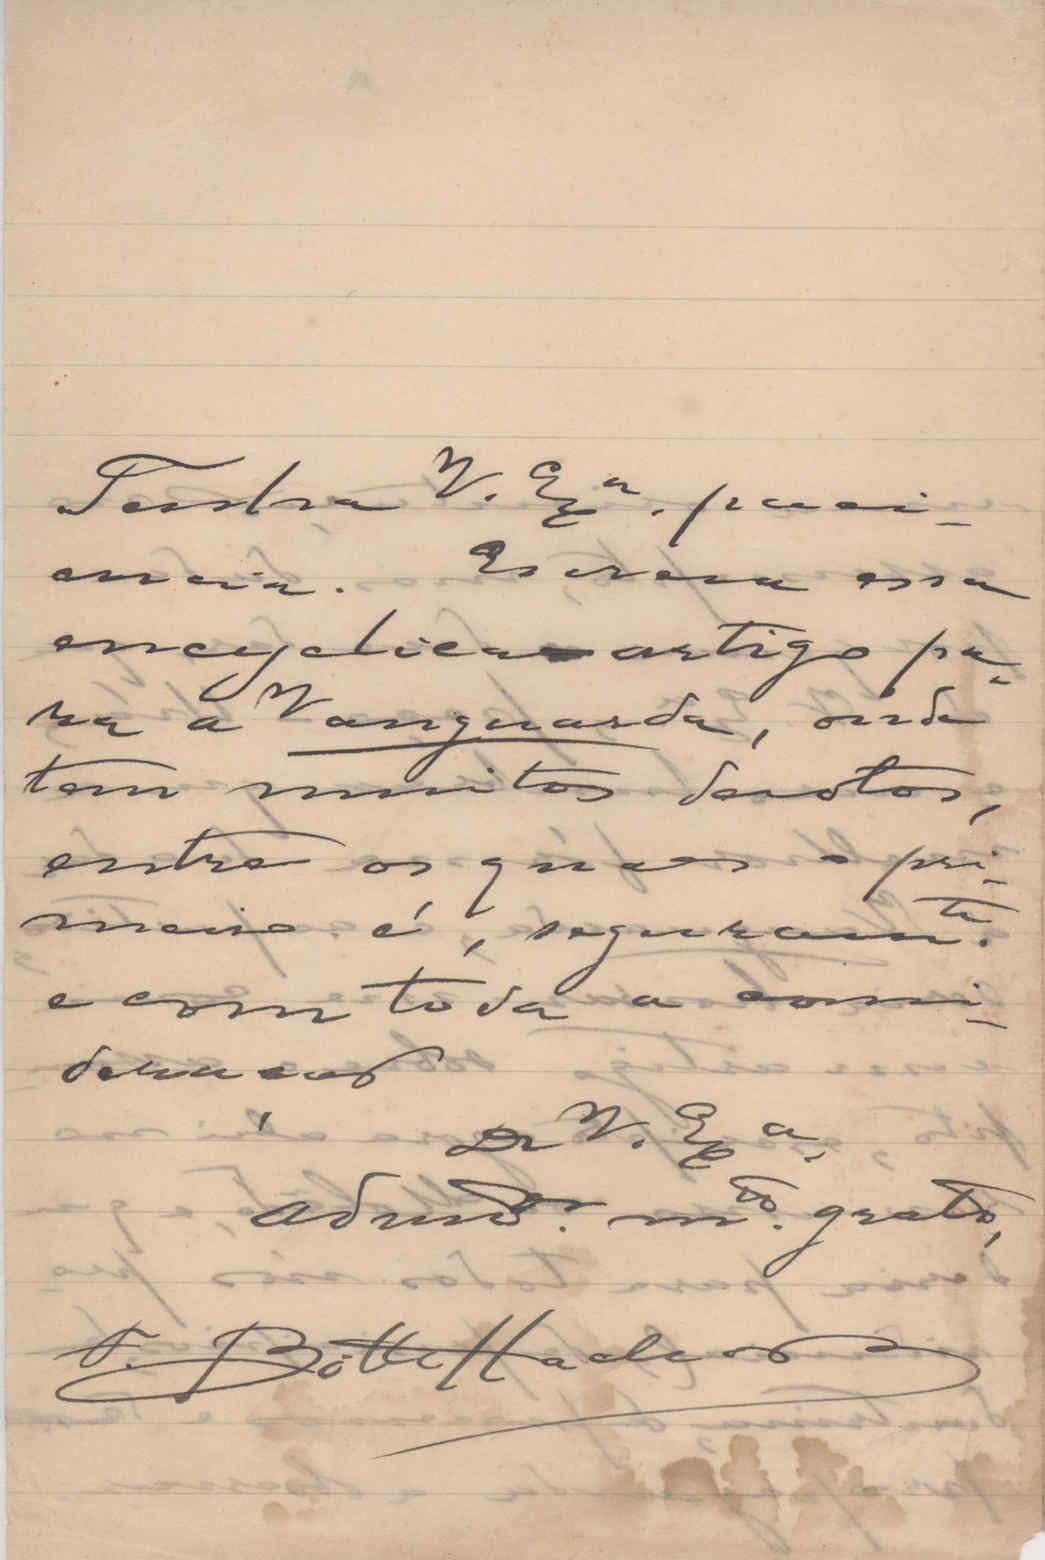 Tenha V. Exª. paci-
encia. Escreva essa
encyclica-artigo pa-
ra a Vanguarda, onde
tem muitos devotos,
entre os quaes o pri-
meiro é, seguramte.
e com toda a consi-
deração
De V. Exª.
admdor. mto. grato,
F. Botto Machado